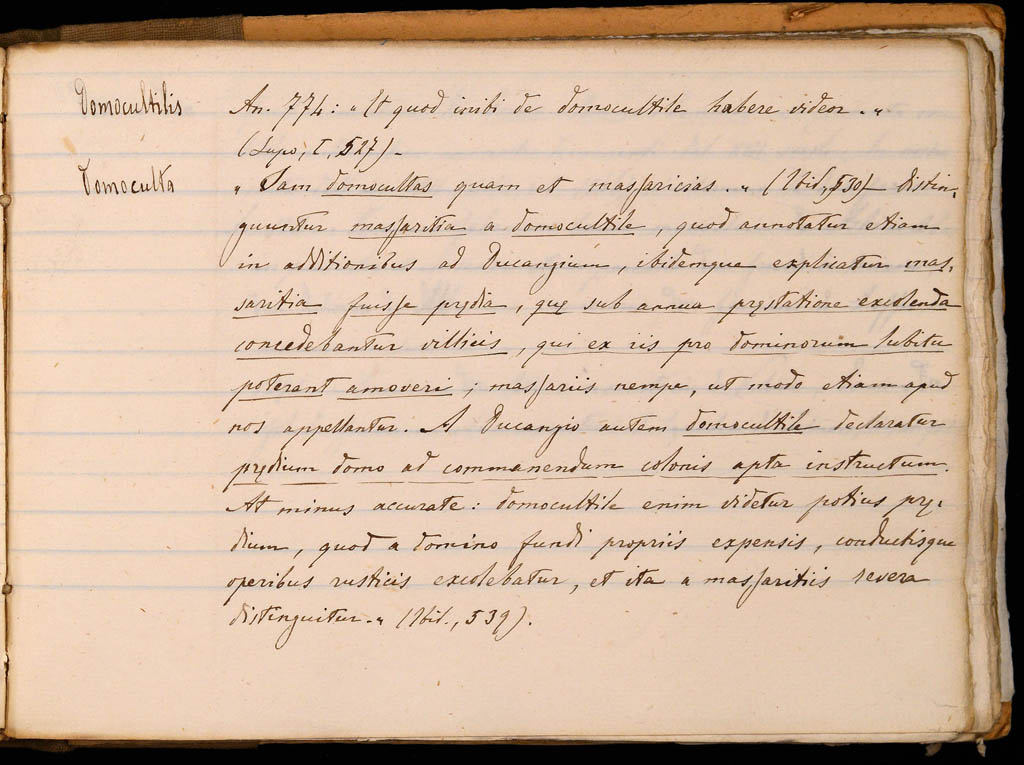 Domocultilis An. 774: „ Et quod inibi de domocultile habere videor. „
(Lupo, I, 527).
Domoculta „ Tam domocultas quam et massaricias. „ (Ibid., 530) distin-
guuntur massaritia a domocultile, quod annotatur etiam
in additionibus ad Ducangium, ibidemque explicatur mas-
saritia fuisse prędia, quę sub annua pręstatione excolenda
concedebantur villicis, qui ex iis pro dominorum lubitu
poterant amoveri; massariis nempe, ut modo etiam apud
nos appellantur. A Ducangio autem domocultile declaratur
prędium domo ad commanendum colonis apta instructum.
At minus accurate: domocultile enim videtur potius prę-
dium, quod a domino fundi propriis expensis, conductisque
operibus rusticis excolebatur, et ita a massaritiis revera
distinguitur. „ (Ibid., 539).